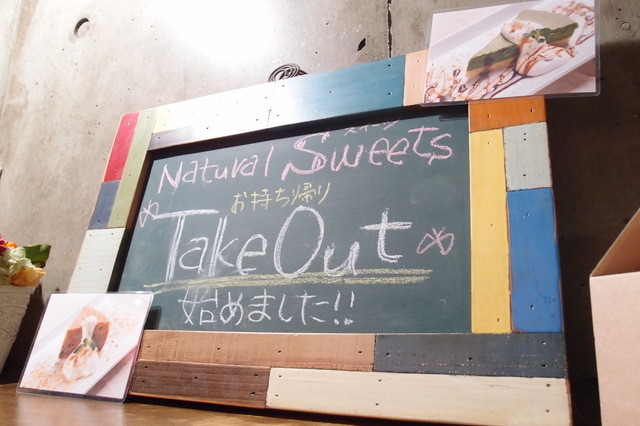 スイーツ
Natural Sweets
お持ち帰り
Take Out
始めました!!